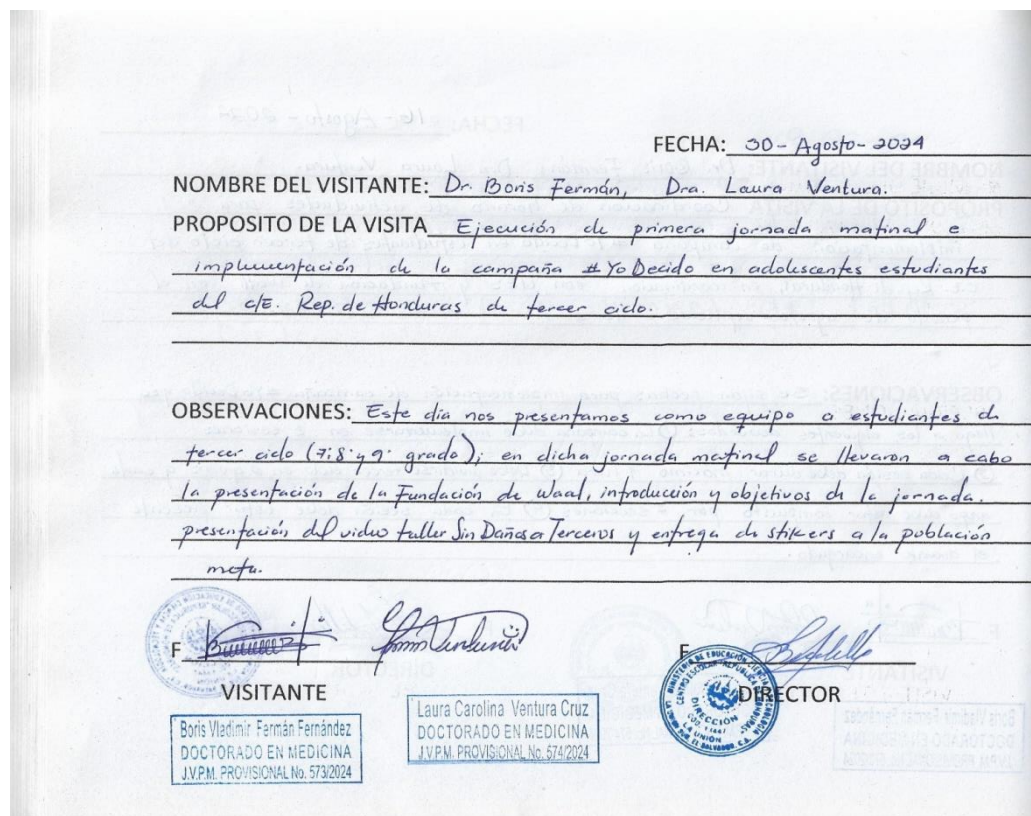 FECHA: 30-Agosto-2024
NOMBRE DEL VISITANTE: Dr. Boris Fermán, Dra. Laura Ventura.
PROPOSITO DE LA VISITA Ejecución de primera jornada matinal e
implementación de la campaña #YoDecido en adolescentes estudiantes
del c/E. Rep. de Honduras de tercer ciclo.
OBSERVACIONES: Este día nos presentamos como equipo a estudiantes de
tercer ciclo (7; 8° y 9° grado); en dicha jornada matinal se llevaron a cabo
la presentación de la Fundación de Waal, introducción y objetivos de la jornada.
presentación del video taller Sin Daños a Terceros y entrega de stikers a la población
meta.
F
F
VISITANTE
DIRECTOR
Boris Vladimir Fermán Fernández
DOCTORADO EN MEDICINA
J.V.P.M. PROVISIONAL No. 573/2024
Laura Carolina Ventura Cruz
DOCTORADO EN MEDICINA
J.V.P.M. PROVISIONAL No. 574/2024
MINISTERIO DE EDUCACIÓN CIENCIA Y TECNOLOGÍA
CENTRO ESCOLAR "REPUBLICA
DIRECCION
LA UNION
EL SALVADOR, C.A.